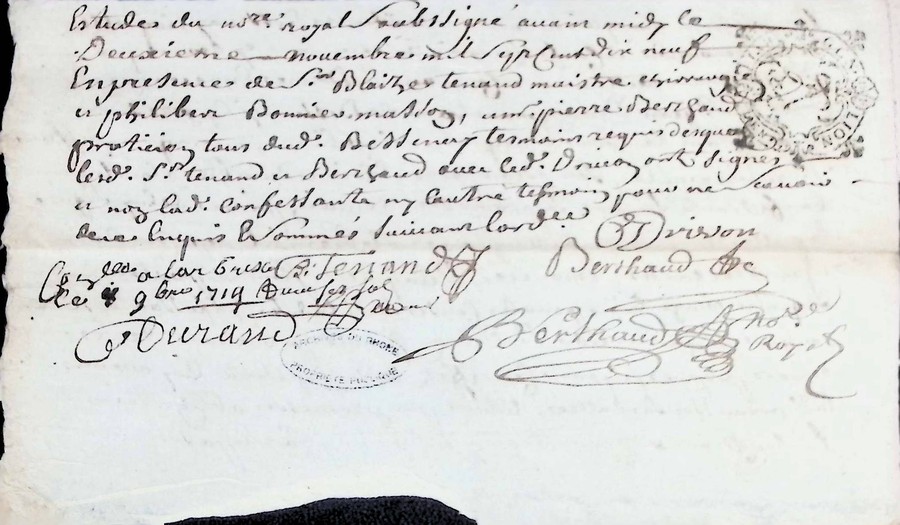 Estudes du no.re royal Soubssigné avant midy le
Deuxieme novembre mil Sept Cent dix neuf
En presences de S.r Blaize tenand maistre chirurg
et philiber Bonnier masson, et m.e pierre Berthaud
praticien tous dud. Bessenay tesmoins requis desquels
lesd. S.rs tenand et Berthaud avec led. Drivon ont signés
et non lad. Confessante ny l'autre tesmoin pour ne Scavoir
de ce Enquis et Sommés Suivant l'ord.ce
Drivon
B. Tenand
Berthaud
Con.llé a larbresle
le 9.bre 1719
Durand
Berthaud No.re
Royal
ARCHIVES DU RHONE
PROPRIÉTÉ PUBLIQUE
LION